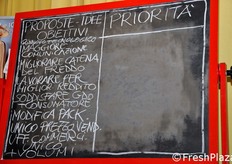 PROPOSTE - IDEE
PRIORITA'
OBIETTIVI
MAGGIORE
COMUNICAZIONE
MIGLIORARE CATENA
DEL FREDDO
LAVORARE PER
MIGLIOR REDDITO
SODDISFARE GDO
CONSUMATORE
MODIFICA PACK
UNICO PREZZO VEND.
UFF. COMMERC.
UNICO
+ VOLUMI
© FreshPlaza